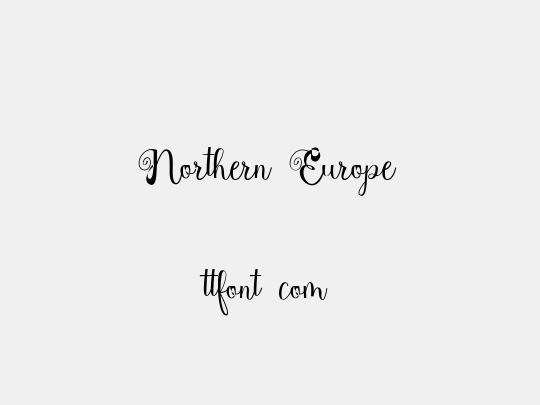 Northern Europe
ttfont com